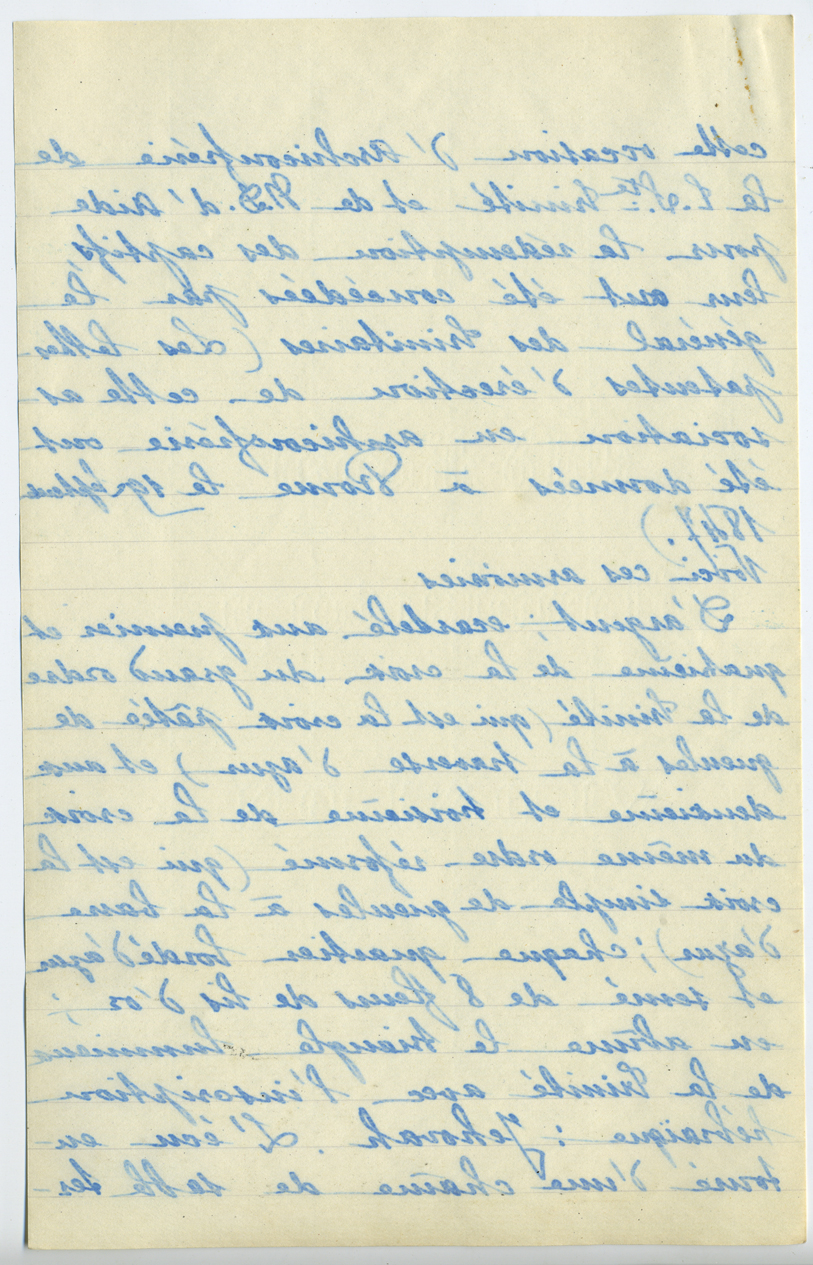 cette vocation d'Archiconfrérie de
la T. Ste Trinité et de N.D. d'Aide
pour la rédemption des captifs,
leur ont été concédées par le
général des Trinitaires (Les lettres
patentes d'érection de cette as
sociation en archiconfrérie ont
été données à Rome le 19
1847.)
Voici ces armoiries
D'argent; écartelé aux premier et
quatrième de la croix du grand ordre
de la Trinité (qui est la croix pâtée de
gueules à la traverse d'azur) et aux
deuxième et troisième de la croix
du même ordre réformé (qui est la
croix simple de gueules à la barre
d'azur); chaque quartier bordé d'azur
et semé de 8 fleurs de lis d'or;
en abîme le triangle lumineux
de la Trinité avec l'inscription
hébraïque: Jehovah. L'écu en-
touré d'une chaîne de sable ter-